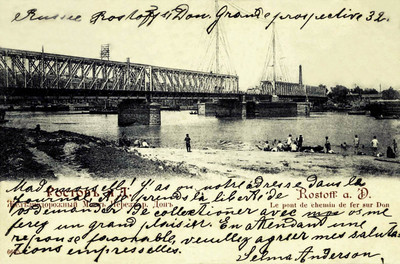 Russie Rostoff s/Don. Grande prospective 32.
Ростовъ н. Д.
Железнодорожный Мостъ через р. Донъ
Rostoff a. D.
Le pont de chemin de fer sur Don
Mademoiselle! Y'as eu notre adresse dans la
Journal et prends la liberté de
Vous demander. De collectionner avec vous me
ferez un grand plaisir. En attendant une
réponse favorable, veuillez agréer mes saluta-
tions empresselles.
Selma Anderson,